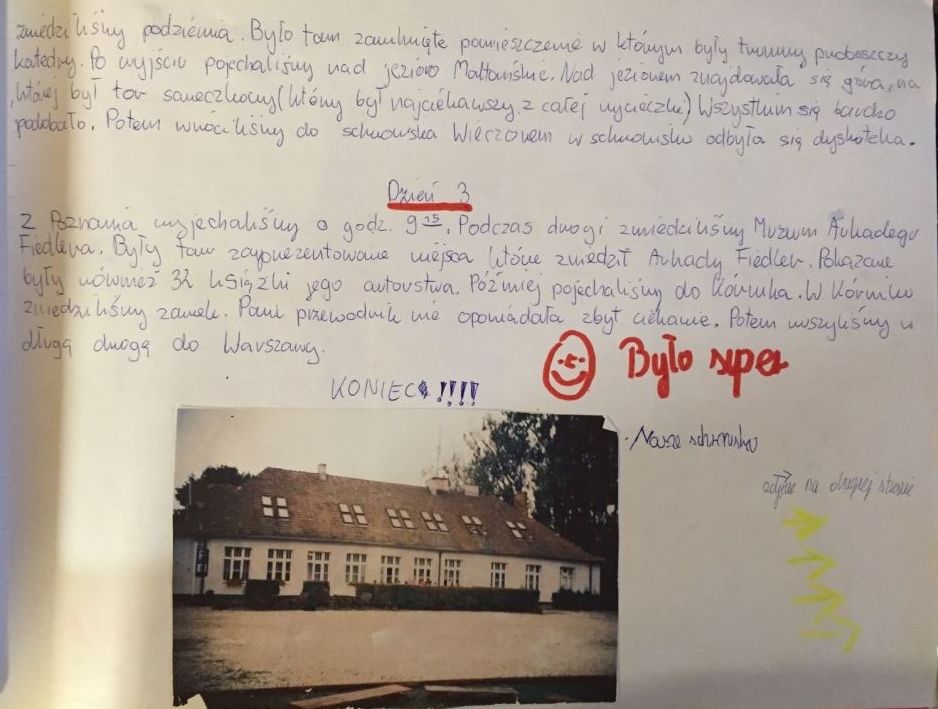 zwiedziliśmy podziemia. Było tam zamknięte pomieszczenie w którym były trumny proboszczy
katedry. Po wyjściu pojechaliśmy nad jezioro Maltańskie. Nad jeziorem znajdowała się góra, na
której był tor saneczkowy (który był najciekawszy z całej wycieczki) Wszystkim się bardzo
podobało. Potem wróciliśmy do schroniska Wieczorem w schronisku odbyła się dyskoteka.
Dzień 3
Z Poznania wyjechaliśmy o godz. 9 15. Podczas drogi zwiedziliśmy Muzum Arkadego
Fiedlera. Były tam zaprezentowane miejsca które zwiedził Arkady Fiedler. Pokazane
były również 32 książki jego autorstwa. Później pojechaliśmy do Kórnika. W Kórniku
zwiedziliśmy zamek. Pani przewodnik nie opowiadała zbyt ciekawie. Potem ruszyliśmy w
długą drogę do Warszawy.
Było super
KONIEC !!!!
- Nasze schronisko
zdjęcie na drugiej stronie